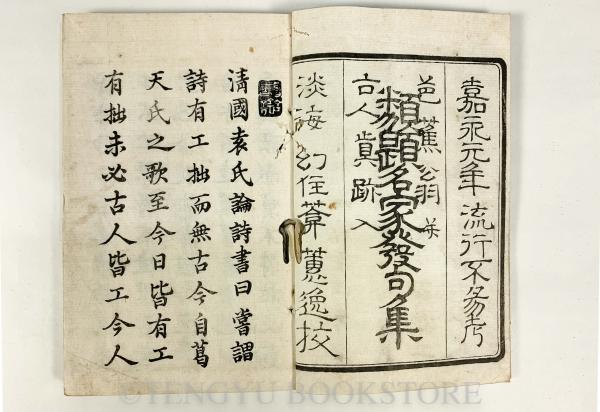 嘉永元年 流行不易考
芭蕉翁並
古人眞跡入
類題名家發句集
淡海 幻住菴 蕙逸校
清國袁氏論詩書曰嘗謂
詩有工拙而無古今自葛
天氏之歌至今日皆有工
有拙未必古人皆工今人
©TENGYU BOOKSTORE